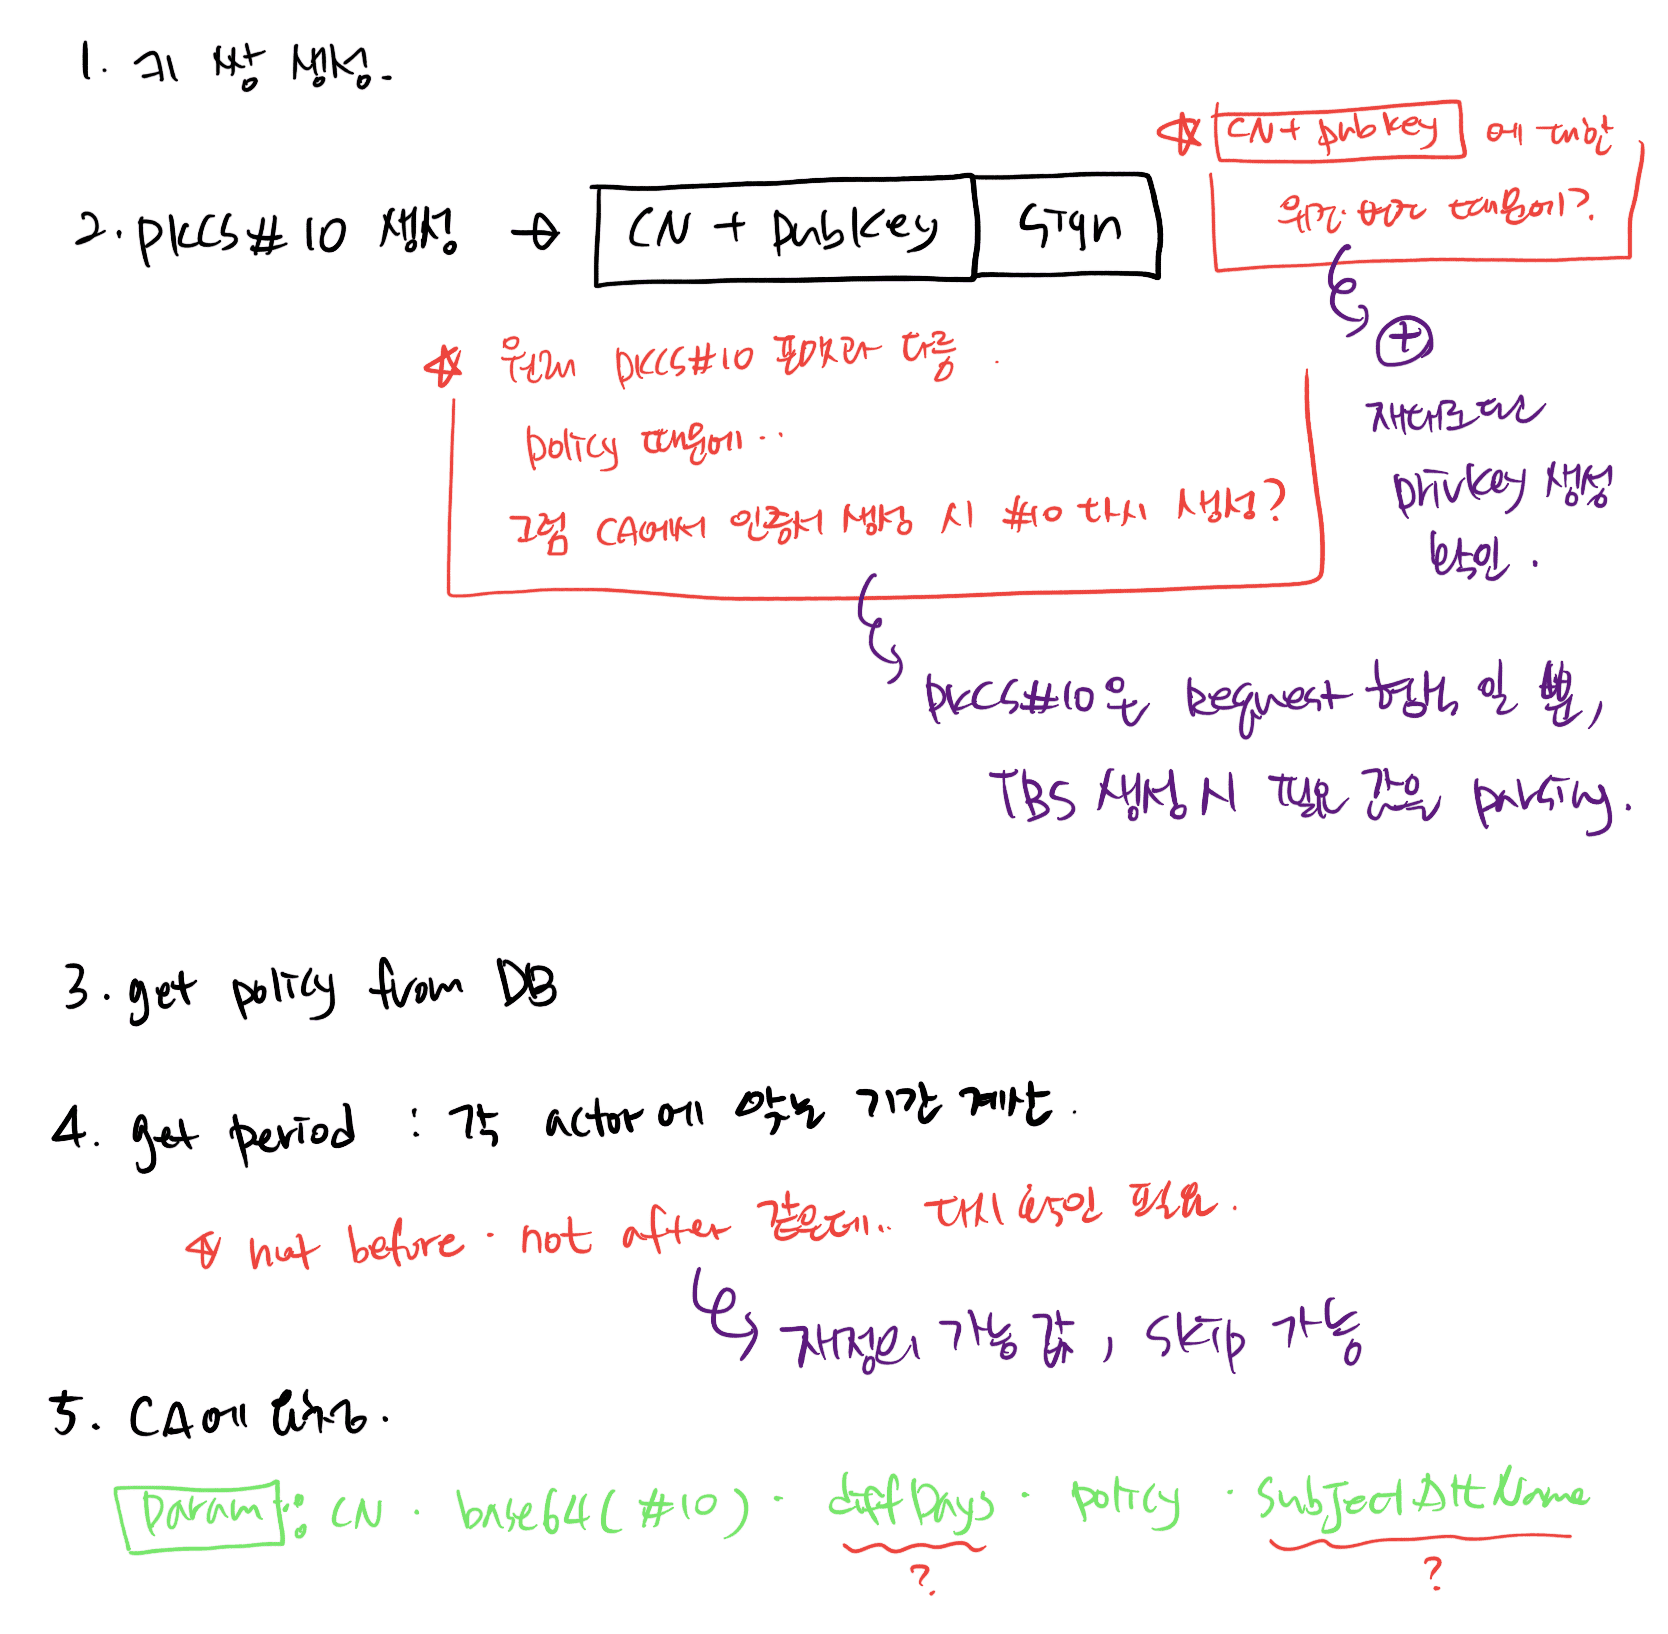 1. 키 쌍 생성.
☆ CN + pubkey 에 대한
위변조 때문에?
2. PKCS#10 생성 → CN + pubkey Sign
+
재대로된
privkey 생성
확인.
☆ 원래 PKCS#10 포맷과 다름.
policy 때문에..
그럼 CA에서 인증서 생성 시 #10 다시 생성?
PKCS#10은 Request 형식 일 뿐,
TBS 생성 시 필요 값을 parsing.
3. get policy from DB
4. get period : 각 actor에 맞는 기간 계산.
☆ not before · not after 같은데.. 다시 확인 필요.
재정의 가능 값, skip 가능
5. CA에 요청.
Param : CN · base64(#10) · diffDays · policy · SubjectAltName
? ?